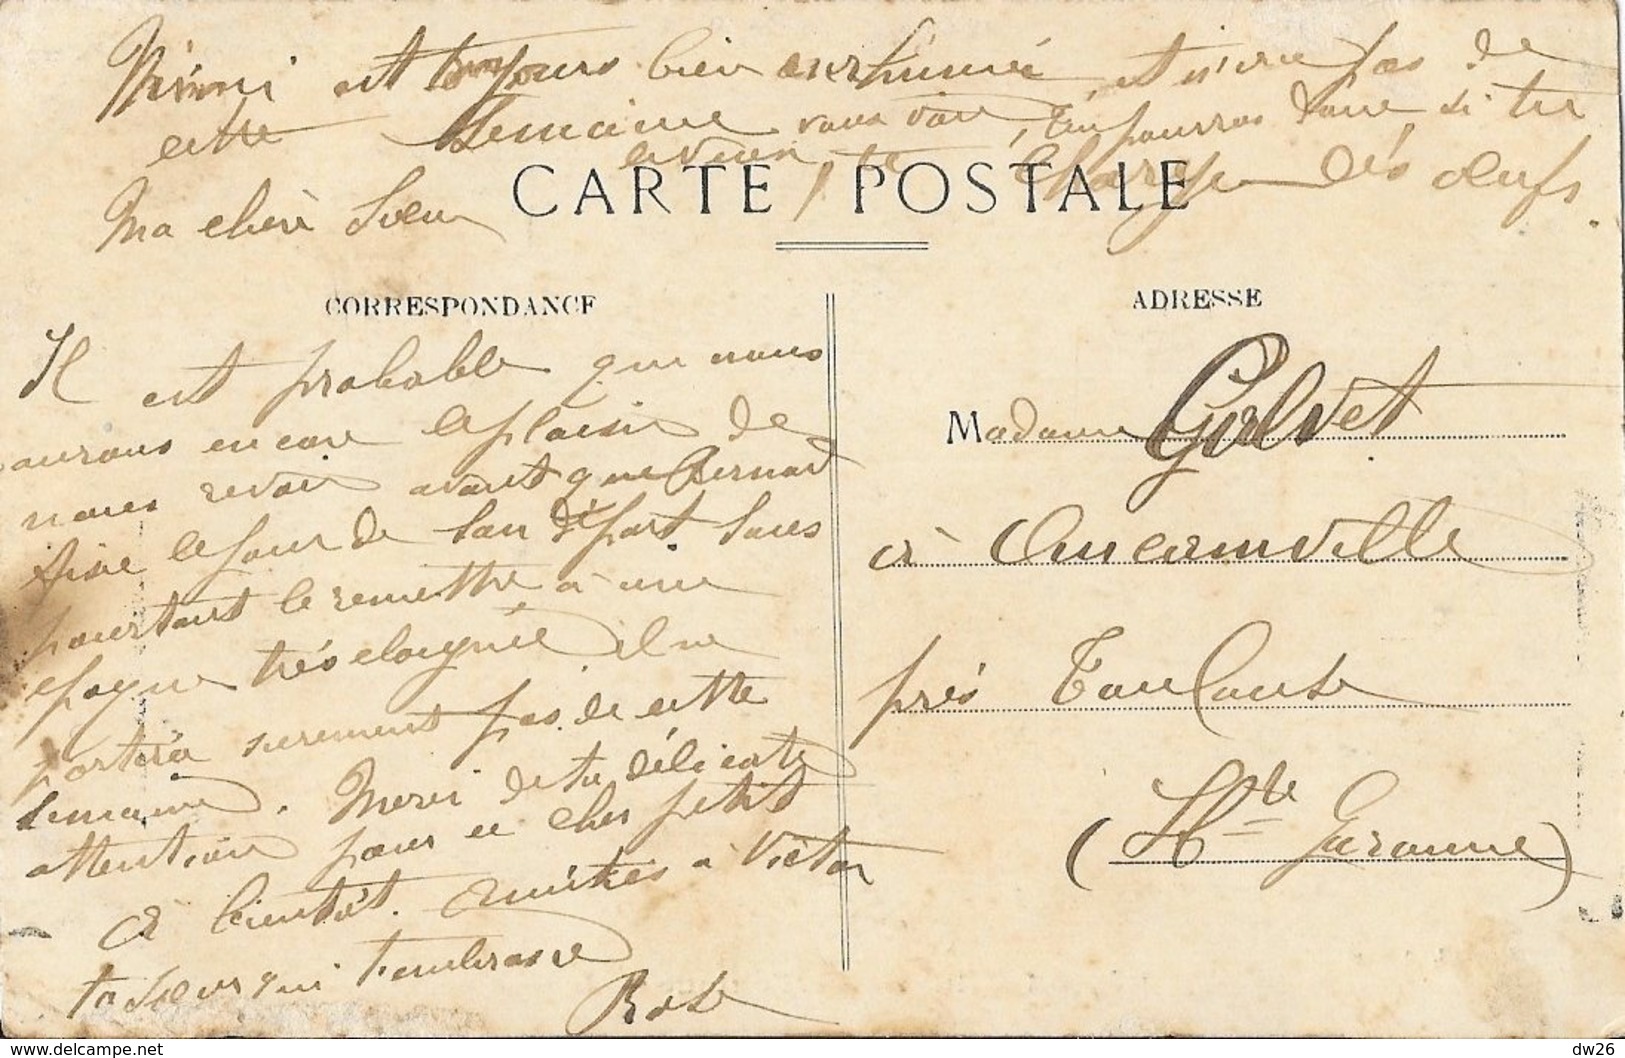 Mimi est toujours bien enrhumé, et n'ira pas de
cette semaine vous voir, tu pourras donc si tu
le veux, te charger dés oeufs.
CARTE POSTALE
Ma chère Soeur
CORRESPONDANCE
Il est probable que nous
aurons encore le plaisir de
nous revoir avant que Bernard
fixe le jour de son départ sans
pourtant le remettre à une
époque très eloignée il ne
partira surement pas de cette
semaine. Merci de ta délicate
attention pour ce cher petit
A bientôt. amitiés à Victor
ta Soeur qui t'embrasse
Rose
ADRESSE
Madame Golvet
à Aucamville
près Toulouse
(Hte Garonne)
delcampe.net
dw26